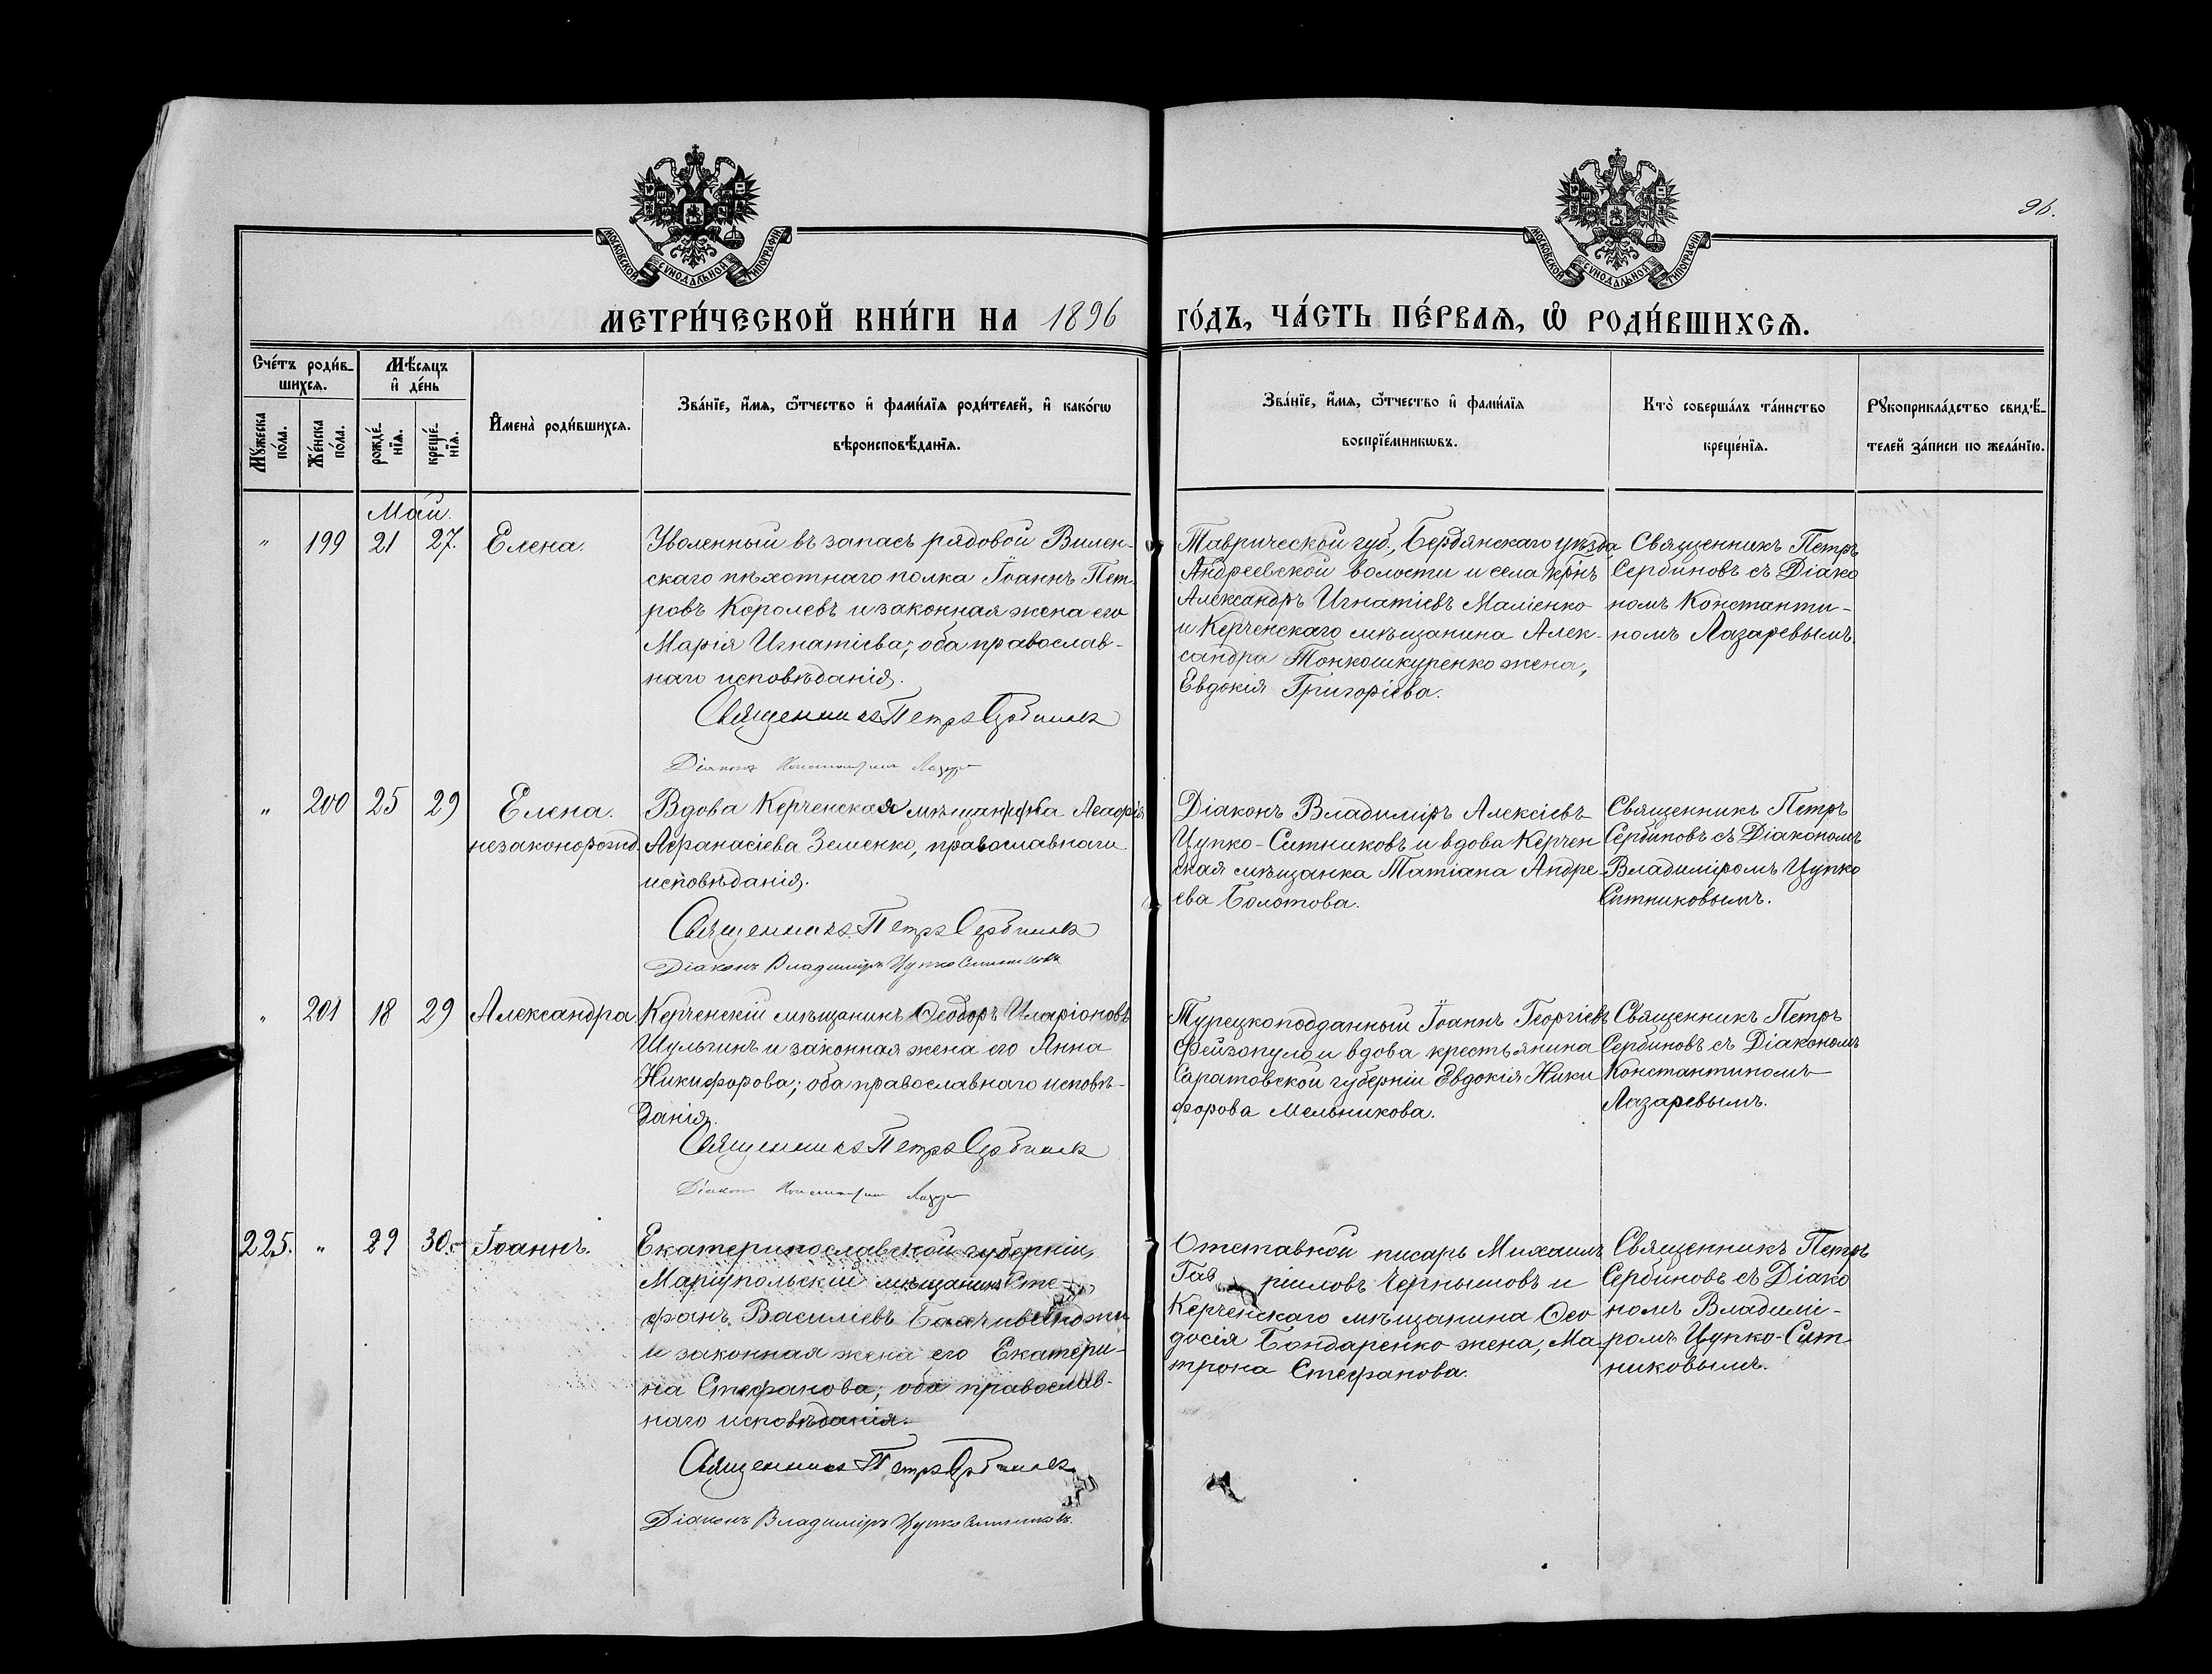 96.
МОСКОВСКОЙ СѴНОДАЛЬНОЙ ТИПОГРАФІИ
МОСКОВСКОЙ СѴНОДАЛЬНОЙ ТИПОГРАФІИ
МЕТРИ́ЧЕСКОЙ КНИ́ГИ НА 1896 ГО́ДЪ, ЧА́СТЬ ПЕ́РВАѦ, Ѡ҆ РОДИ́ВШИХСѦ.
Сче́тъ роди́в-
шихсѧ.
Мѣ́сѧцъ
и҆ де́нь
Мꙋ́жеска
по́ла.
Же́нска
по́ла.
рожде́-
нїѧ.
креще́-
нїѧ.
И҆мена̀ роди́вшихсѧ.
Зва́нїе, и҆́мѧ, ѻ҆́тчество и҆ фами́лїѧ роди́телей, и҆ како́гѡ
вѣроисповѣ́данїѧ.
Зва́нїе, и҆́мѧ, ѻ҆́тчество и҆ фами́лїѧ
воспрїе́мникѡвъ.
Кто̀ соверша́лъ та́инство
креще́нїѧ.
Рꙋкоприкла́дство свидѣ́-
телей за́писи по жела́нїю.
Май.
" 199 21 27. Елена.
Уволенный въ запасъ рядовой Вилен-
скаго пѣхотнаго полка Іоаннъ Пет-
ровъ Королевъ и законная жена его
Марія Игнатіева; оба православ-
наго исповѣданія.
Священникъ Петръ Сербиновъ
Діаконъ Константинъ Лазаре
Таврической губ., Бердянскаго уѣзда
Андреевской волости и села крнъ
Александръ Игнатіевъ Маліенко
и Керченскаго мѣщанина Алек-
сандра Тонкошкуренко жена,
Евдокія Григоріева.
Священникъ Петръ
Сербиновъ съ Діако
номъ Константи-
номъ Лазаревымъ.
" 200 25 29 Елена.
незаконорожд.
Вдова Керченская мѣщанка
Аѳанасіева Зеленко, православнаго
исповѣданія.
Священникъ Петръ Сербиновъ
Діаконъ Владиміръ Цупко Ситниковъ
Діаконъ Владиміръ Алексіевъ
Цупко-Ситниковъ и вдова Керчен
ская мѣщанка Татіана Андре-
ева Болотова.
Священникъ Петръ
Сербиновъ съ Діакономъ
Владиміромъ Цупко
Ситниковымъ.
" 201 18 29 Александра
Керченскій мѣщанинъ Ѳеодоръ Иларіоновъ
Шульгинъ и законная жена его Анна
Никифорова; оба православнаго исповѣ-
данія.
Священникъ Петръ Сербиновъ
Діаконъ Константинъ Лазаре
Турецкоподданный Іоаннъ Георгіевъ
Фейзопуло и вдова крестьянина
Саратовской губерніи Евдокія Ники
форова Мельникова.
Священникъ Петръ
Сербиновъ съ Діакономъ
Константиномъ
Лазаревымъ.
225. " 29 30. Іоаннъ.
Екатеринославской губерніи,
Маріупольскій мѣщанинъ Сте-
фанъ Василіевъ
и законная жена его Екатери-
на Стефанова; оба православ-
наго исповѣданія.
Священникъ Петръ Сербиновъ
Діаконъ Владиміръ Цупко Ситниковъ.
Отставной писарь Михаилъ
Гав ріиловъ Чернышовъ и
Керченскаго мѣщанина Ѳео
досія Бондаренко жена, Ма-
трона Стефанова.
Священникъ Петръ
Сербиновъ съ Діако
номъ Владимі-
ромъ Цупко-Сит
никовымъ.